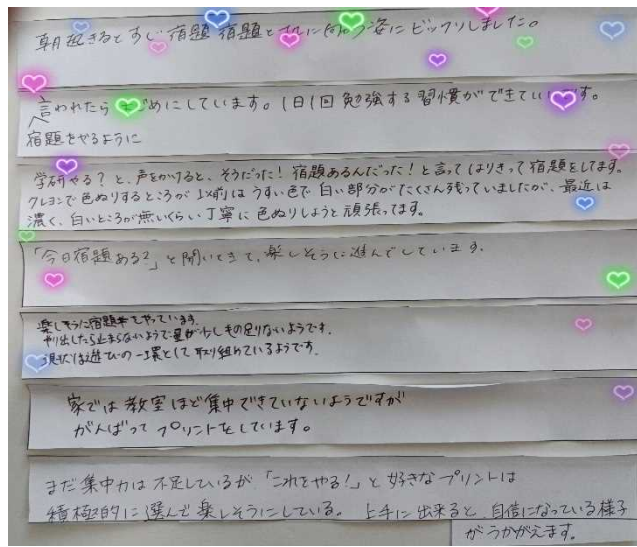 朝起きるとすぐ宿題宿題と机に向う姿にビックリしました。
言われたらまじめにしています。1日1回勉強する習慣ができています。
宿題をやるように
学研やる?と、声をかけると、そうだった!宿題あるんだった!と言ってはりきって宿題をしてます。
クレヨンで色ぬりするところが以前はうすい色で白い部分がたくさん残っていましたが、最近は
濃く、白いところが無いくらい丁寧に色ぬりしようと頑張ってます。
「今日宿題ある?」と聞いてきて、楽しそうに進んでしています。
楽しそうに宿題をやっています。
やり出したら止まらないようで量が少しもの足りないようです。
現状は遊びの一環として取り組めているようです。
家では教室ほど集中できていないようですが
がんばってプリントをしています。
まだ集中力は不足しているが「これをやる!」と好きなプリントは
積極的に選んで楽しそうにしている。上手に出来ると自信になっている様子
がうかがえます。